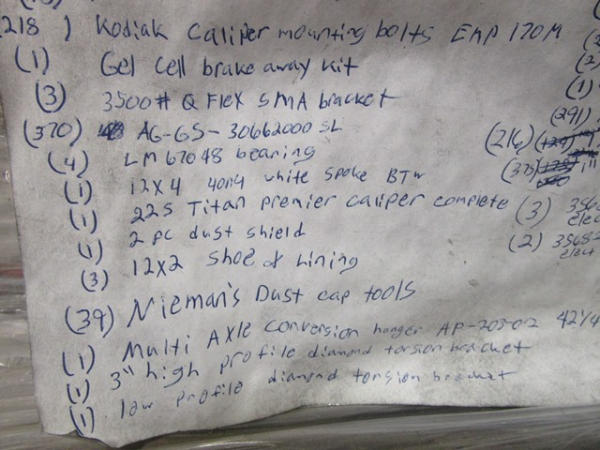 218 ) Kodiak Caliper mounting bolts EMP 170M
(1) Gel Cell brake away kit
(3) 3500# Q Flex SMA bracket
(370) AG-GS-30662000SL
(4) LM 67048 bearing
(1) 12X4 40n4 white spoke BTW
(1) 225 Titan premier caliper complete
(1) 2 pc dust shield
(3) 12X2 shoe & Lining
(39) Nieman's Dust cap tools
(1) Multi Axle conversion hanger 42 1/4
(1) 3" high profile diamond torsion bracket
(1) low profile diamond torsion bracket
(2)
(1)
(291)
(216)
(3) 356
elec
(2) 35682
elect